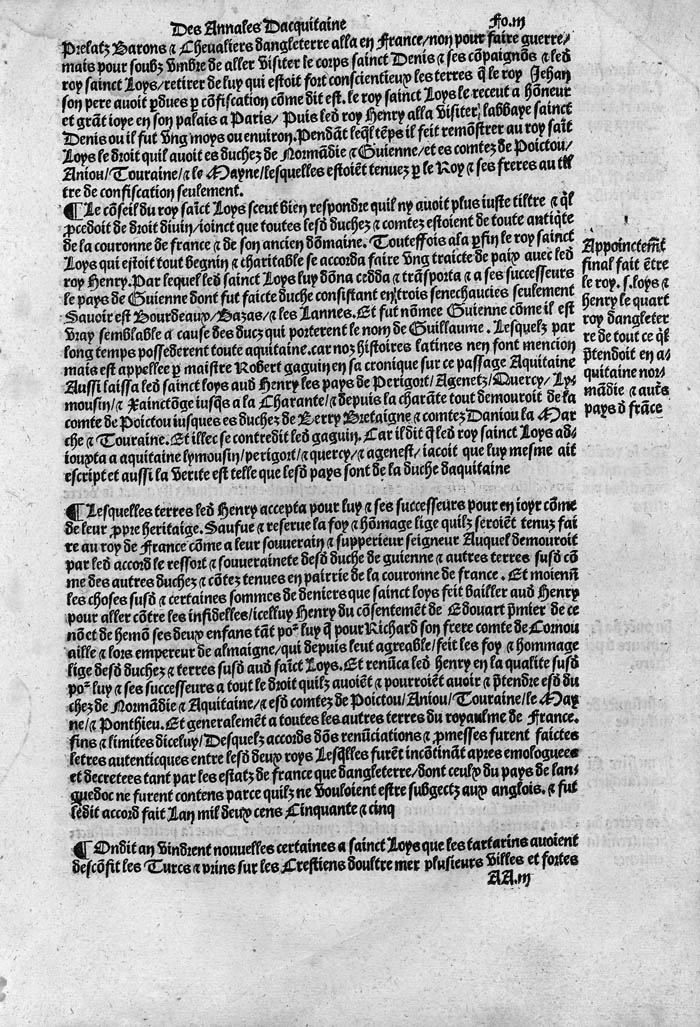 Des Annales Dacquitaine Fo.iii
Prelatz Barons ⁊ Cheualiers dangleterre alla en France/non pour faire guerre/
mais pour soubz vmbre de aller visiter le corps sainct Denis ⁊ ses cōpaignōs ⁊ led
roy sainct Loys/retirer de luy qui estoit fort conscientieux les terres q̄ le roy Jehan
son pere auoit ꝑdues ꝑ cōfiscation cōme dit est. le roy sainct Loys le receut a hōneur
et grāt ioye en son palais a Paris/ Puis led roy Henry alla visiter labbaye sainct
Denis ou il fut vng moys ou enuiron. Pendāt leq̄l tēps il feit remōstrer au roy saīt
Loys le droit quil auoit es duchez de Normādie ⁊ Guienne/et es comtez de Poictou/
Aniou/Touraine/⁊ le Mayne/lesquelles estoiēt tenuez ꝑ le Roy ⁊ ses freres au til
tre de confiscation seulement.
¶ Le cōseil du roy saīct Loys sceut bien respondre quil ny auoit plus iuste tiltre ⁊ q̄l
ꝓcedoit de droit diuin/ioinct que toutes lesd duchez ⁊ comtez estoient de toute antiq̄te
de la couronne de france ⁊ de son ancien dōmaine. Touteffois a la ꝑfin le roy sainct
Loys qui estoit tout begnin ⁊ charitable se accorda faire vng traicte de paix auec led
roy Henry. Par lequel led sainct Loys luy dōna cedda ⁊ trāsporta ⁊ a ses successeurs
le pays de Guienne dont fut faicte duche consistant en trois senechaucies seulement
Sauoir est Bourdeaux/Bazas/⁊ les Lannes. Et fut nōmee Guienne cōme il est
vray semblable a cause des ducz qui porterent le nom de Guillaume. Lesquelz par
long temps possederent toute aquitaine. car noz histoires latines nen font mencion
mais est appellee ꝑ maistre Robert gaguin en sa cronique sur ce passage Aquitaine
Aussi laissa led sainct loys aud Henry les pays de Perigort/Agenetz/Quercy/Ly-
mousin/⁊ Xainctōge iusq̄s a la Charante/⁊ depuis la charāte tout demouroit de la
comte de Poictou iusques es duchez de Berry Bretaigne ⁊ comtez Daniou la Mar
che ⁊ Touraine. Et illec se contredit led gaguin. Car il dit q̄ led roy sainct Loys ad-
iouxta a aquitaine lymousin/perigort/⁊ quercy/⁊ agenest/iacoit que luy mesme ait
escript et aussi la verite est telle que lesd pays sont de la duche daquitaine
Appoinctemēt
final fait ētre
le roy. s. loys ⁊
henry le quart
roy dangleter
re de tout ce q̄l
p̄tendoit en a-
quitaine nor-
mādie ⁊ aut̄s
pays d frāce
¶ Lesquelles terres led Henry accepta pour luy ⁊ ses successeurs pour en ioyr cōme
de leur ꝓpre heritaige. Saufue ⁊ reserue la foy ⁊ hōmage lige quilz seroiēt tenuz fai
re au roy de France cōme a leur souuerain ⁊ supperieur seigneur Auquel demouroit
par led accord le ressort ⁊ souuerainete desd duche de guienne ⁊ autres terres susd cō
me des autres duchez ⁊ cōtez tenues en pairrie de la couronne de france. Et moienn̄
les choses susd ⁊ certaines sommes de deniers que sainct loys feit bailler aud Henry
pour aller cōtre les infidelles/icelluy Henry du cōsentemēt de Edouart p̄mier de ce
nō et de hemō ses deux enfans tāt poꝰ luy q̄ pour Richard son frere comte de Cornou
aille ⁊ lors empereur de almaigne/qui depuis leut agreable/feit les foy ⁊ hommage
lige desd duchez ⁊ terres susd aud saīct Loys. Et renūca led henry en la qualite susd
poꝰ luy ⁊ ses successeurs a tout le droit quilz auoiēt ⁊ pourroiēt auoir ⁊ p̄tendre esd du
chez de Normādie ⁊ Aquitaine/⁊ esd comtez de Poictou/Aniou/Touraine/le May
ne/⁊ Ponthieu. Et generalemēt a toutes les autres terres du royaulme de France.
fins ⁊ limites diceluy/Desquelz accords dōs renūciations ⁊ ꝓmesses furent faictes
letres autenticques entre lesd deux roys Lesq̄lles furēt incōtināt apres emologuees
et decretees tant par les estatz de france que dangleterre/dont ceulx du pays de lan-
guedoc ne furent contens parce quilz ne vouloient estre subgectz aux anglois. ⁊ fut
ledit accord fait Lan mil deux cens Cinquante ⁊ cinq
¶ Ondit an vindrent nouuelles certaines a sainct Loys que les tartarins auoient
descōfit les Turcs ⁊ prins sur les Crestiens doultre mer plusieurs villes et fortes
AA.iii